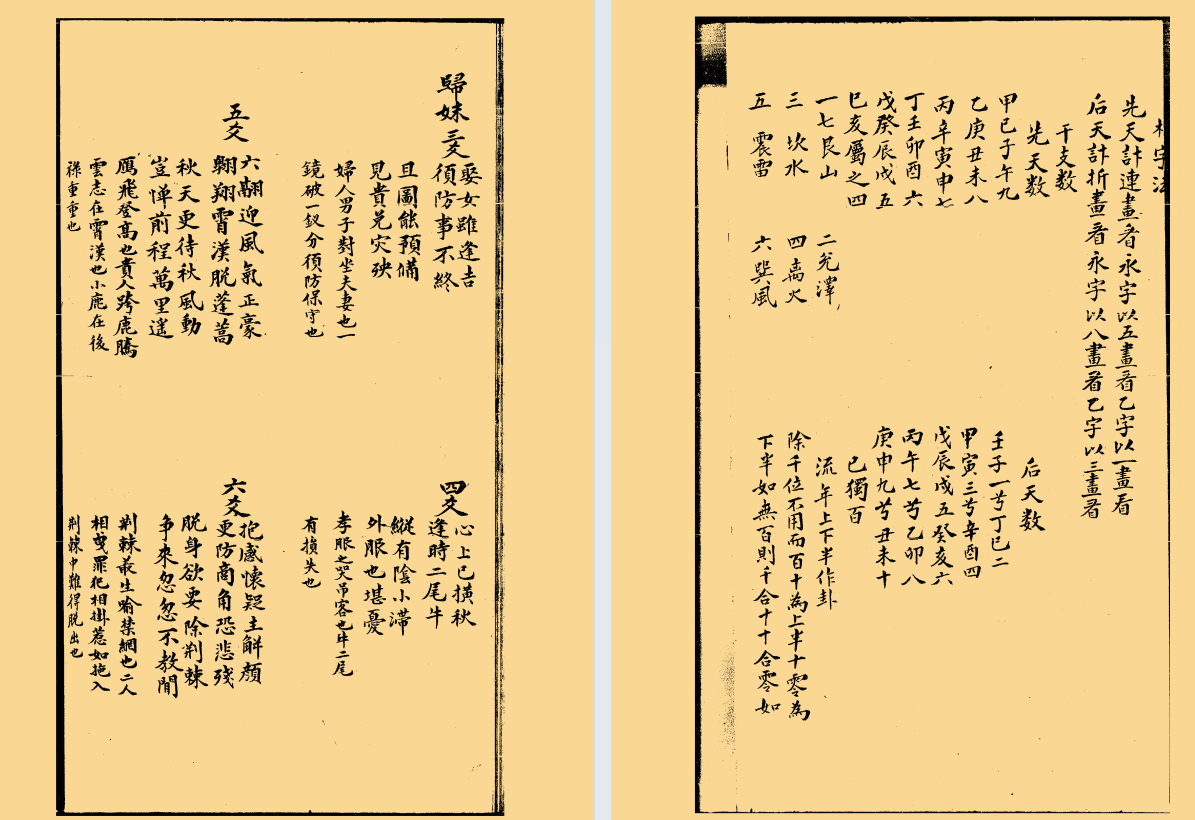 字法
先天計連畫看永字以五畫看乙字以一畫看
后天計折畫看永字以八畫看乙字以三畫看
干支數
先天数
甲己子午九
乙庚丑未八
丙辛寅申七
丁壬卯酉六
戊癸辰戌五
巳亥屬之四
一七艮山 二兊澤
三 坎水 四离火
五 震雷 六巽風
后天数
壬子一兮丁巳二
甲寅三兮辛酉四
戊辰戌五癸亥六
丙午七兮乙卯八
庚申九兮丑未十
已獨百
流年上下半作卦
除千位不用而百十為上半十零為
下半如無百則千合十十合零如
歸妹 三爻
娶女雖逢吉
須防事不終
且圖能預備
見貴兑灾殃
婦人男子對坐夫妻也一
鏡破一釵分須防保守也
四爻
心上已橫秋
逢時二尾牛
縱有陰小滯
外服也堪憂
孝服之哭吊客也牛二尾
有損失也
五爻
六翮迎風氣正豪
翱翔霄漢脱蓬蒿
秋天更待秋風動
豈憚前程萬里遥
鴈飛登高也貴人跨鹿騰
雲志在霄漢也小鹿在後
祿重重也
六爻
抱慼懷疑主觧顏
更防商角恐悲殘
脱身欲要除荆棘
争來忽忽不教閒
荆棘叢生喻禁網也二人
相曳罪犯相掛惹如拖入
荆棘中難得脱出也